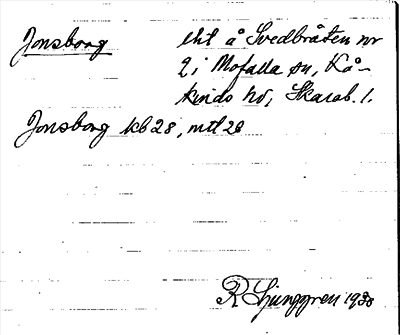 Jonsborg
lht å Svedbråten nr
2 i Mofalla sn, Kå-
kinds hd, Skarab. l.
Jonsborg kb 28, mtl 28
R Ljunggren 1930